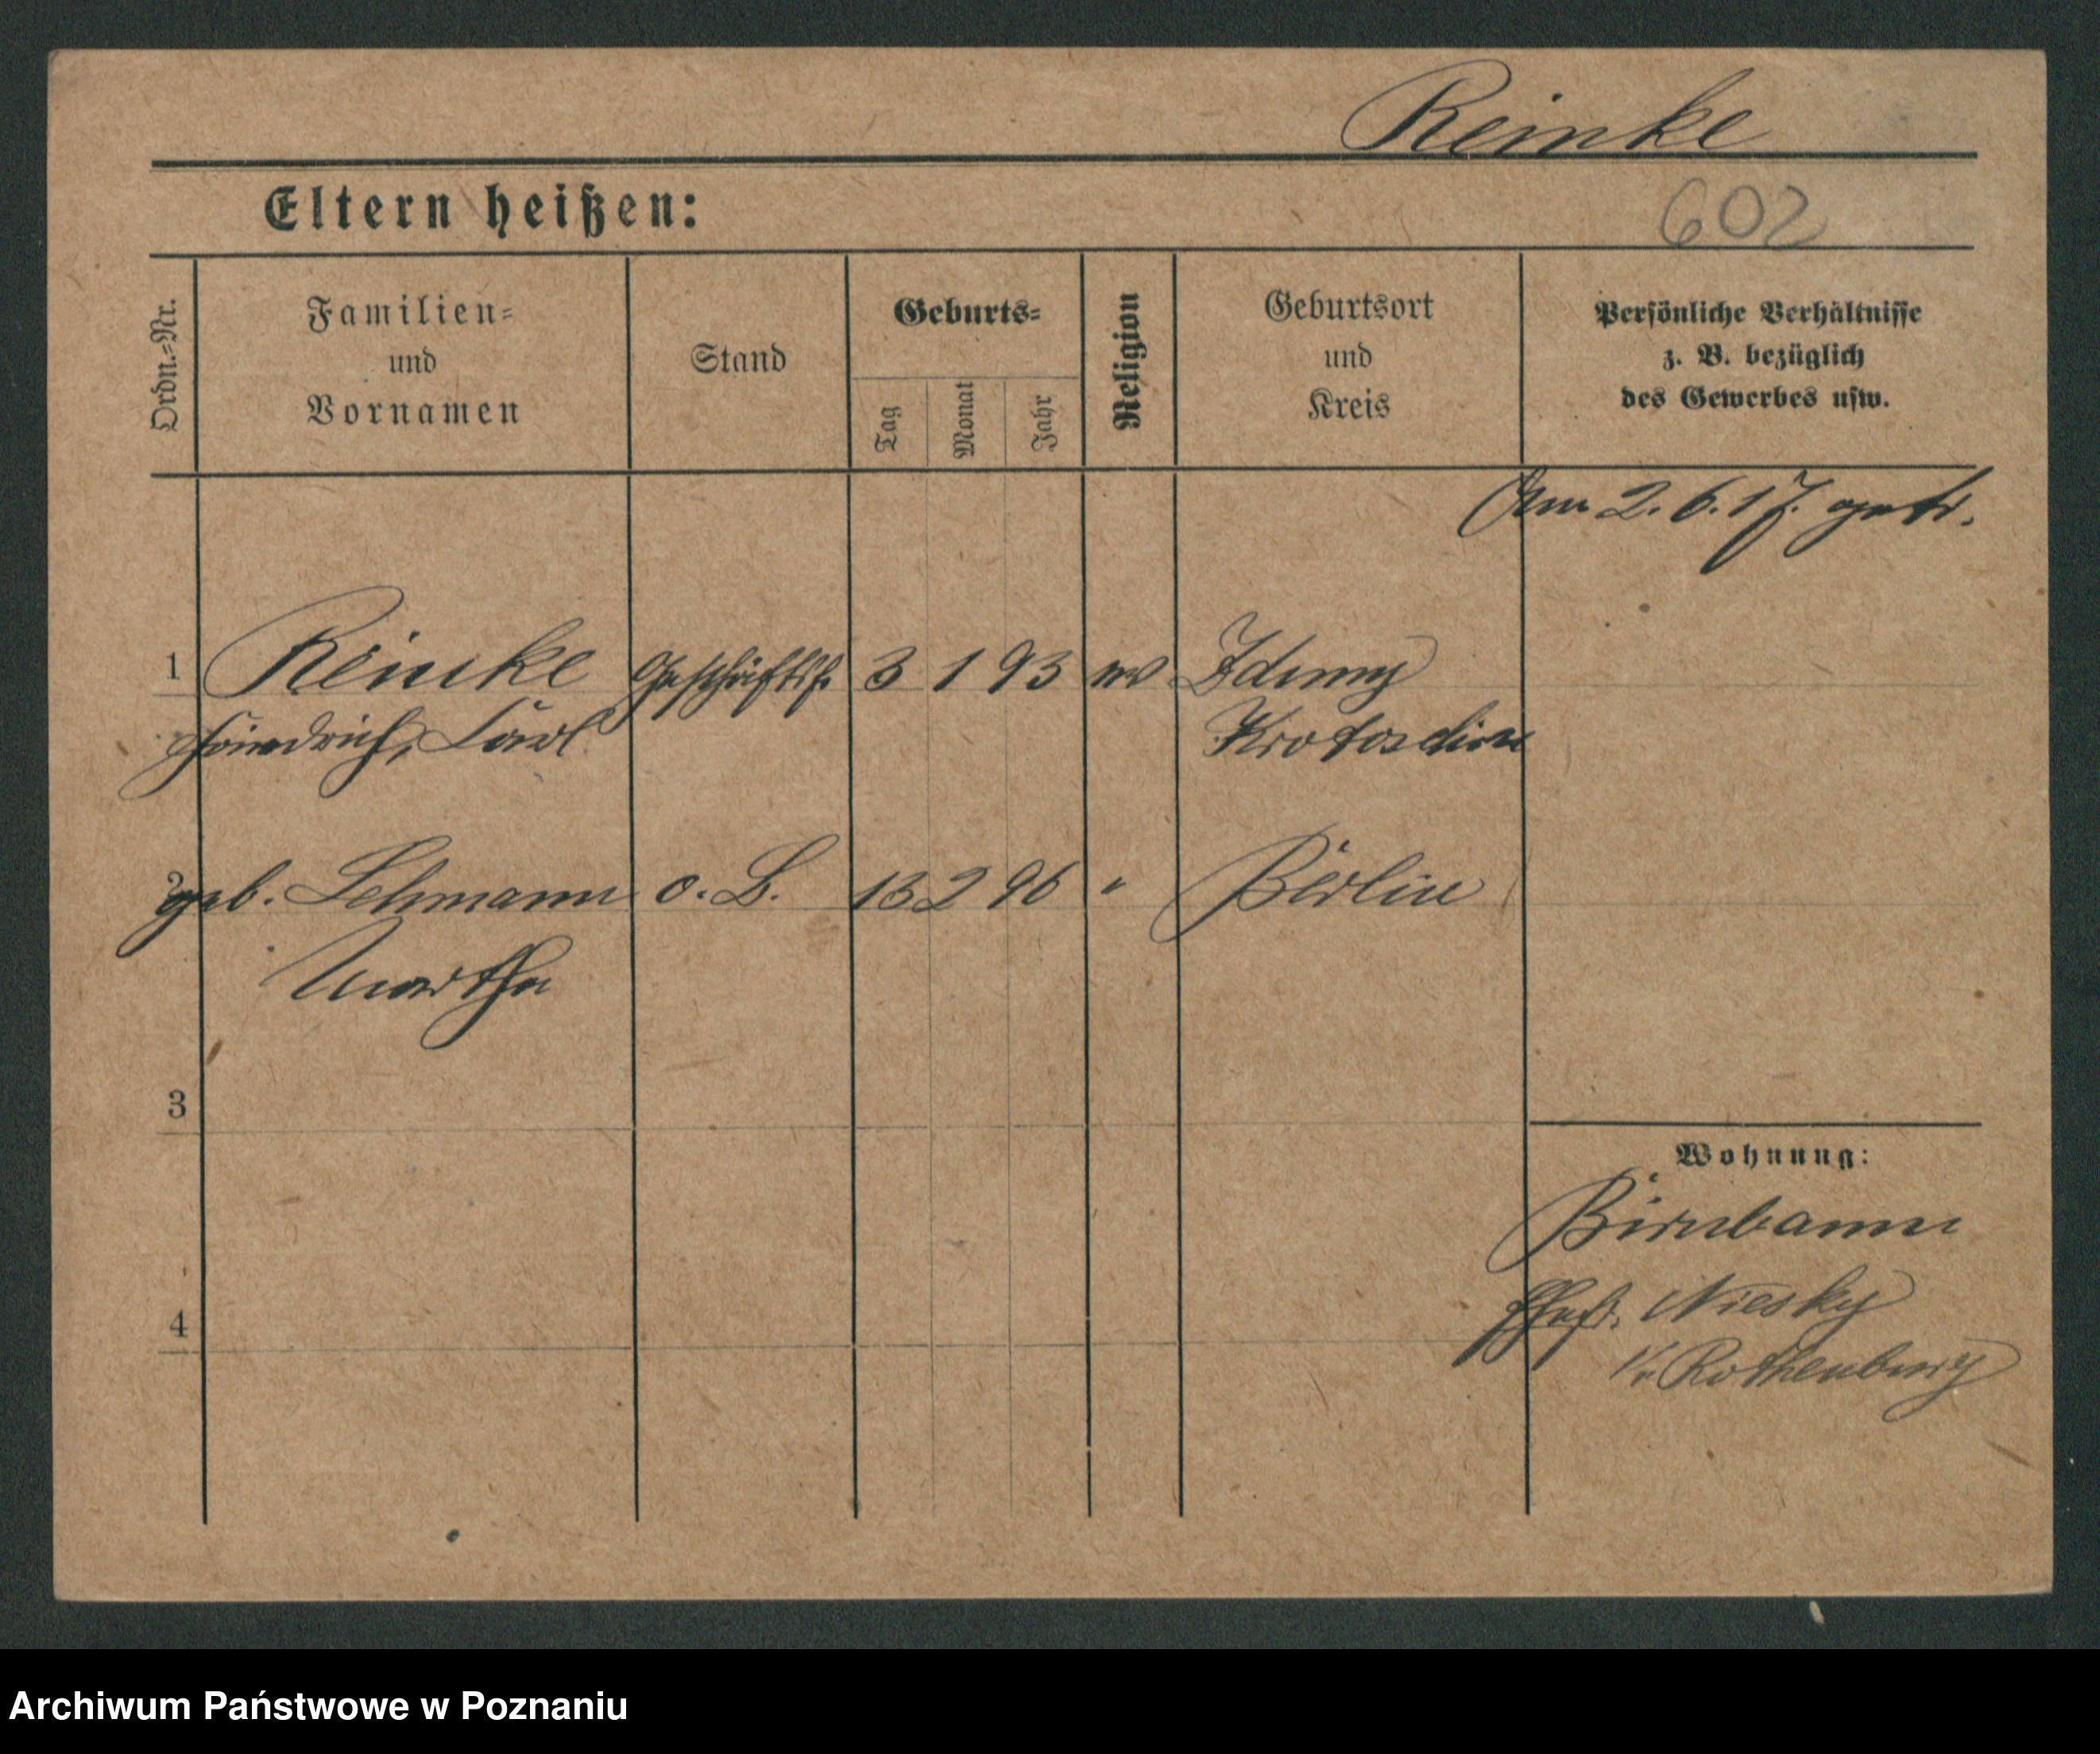 Reinke
Eltern heißen:
602
Ordn.=Nr.
Familien=
und
Vornamen
Stand
Geburts=
Tag
Monat
Jahr
Religion
Geburtsort
und
Kreis
Persönliche Verhältnisse
z. B. bezüglich
des Gewerbes usw.
Am 2. 6. 17. getr.
1 Reinke Geschäftsf. 3 1 93 ev Zduny
Friedrich, Carl Krotoschin
2 geb. Lehmann o. B. 13 2 96 " Berlin
Martha
3
Wohnung:
Birnbaum
4
Ehefr. Niesky
Kr. Rothenburg
Archiwum Państwowe w Poznaniu